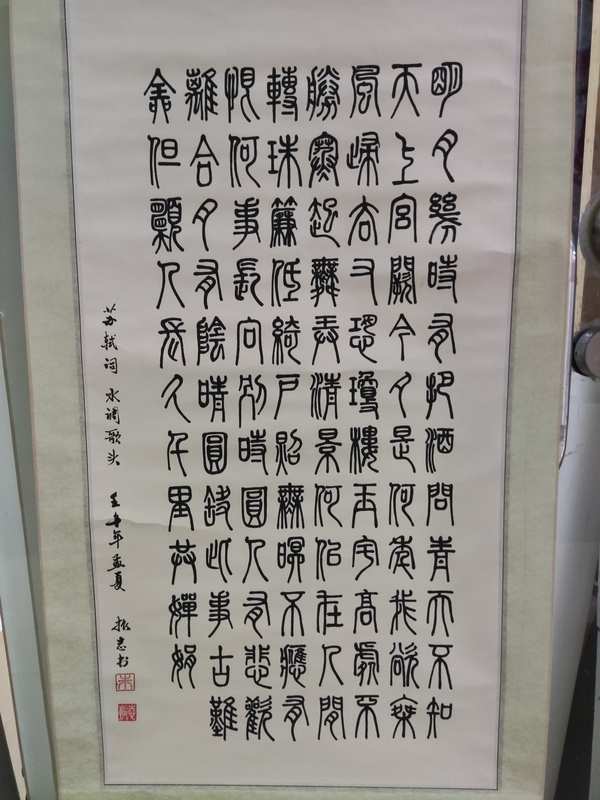 明月幾時有把酒問青天不知
天上宮闕今夕是何年我欲乘
風歸去又恐瓊樓玉宇高處不
勝寒起舞弄清景何似在人間
轉珠簾低綺戶照無眠不應有
恨何事長向別時圓人有悲歡
離合月有陰晴圓缺此事古難
全但願人長久千里共嬋娟
苏轼词 水调歌头 年孟夏 振忠书